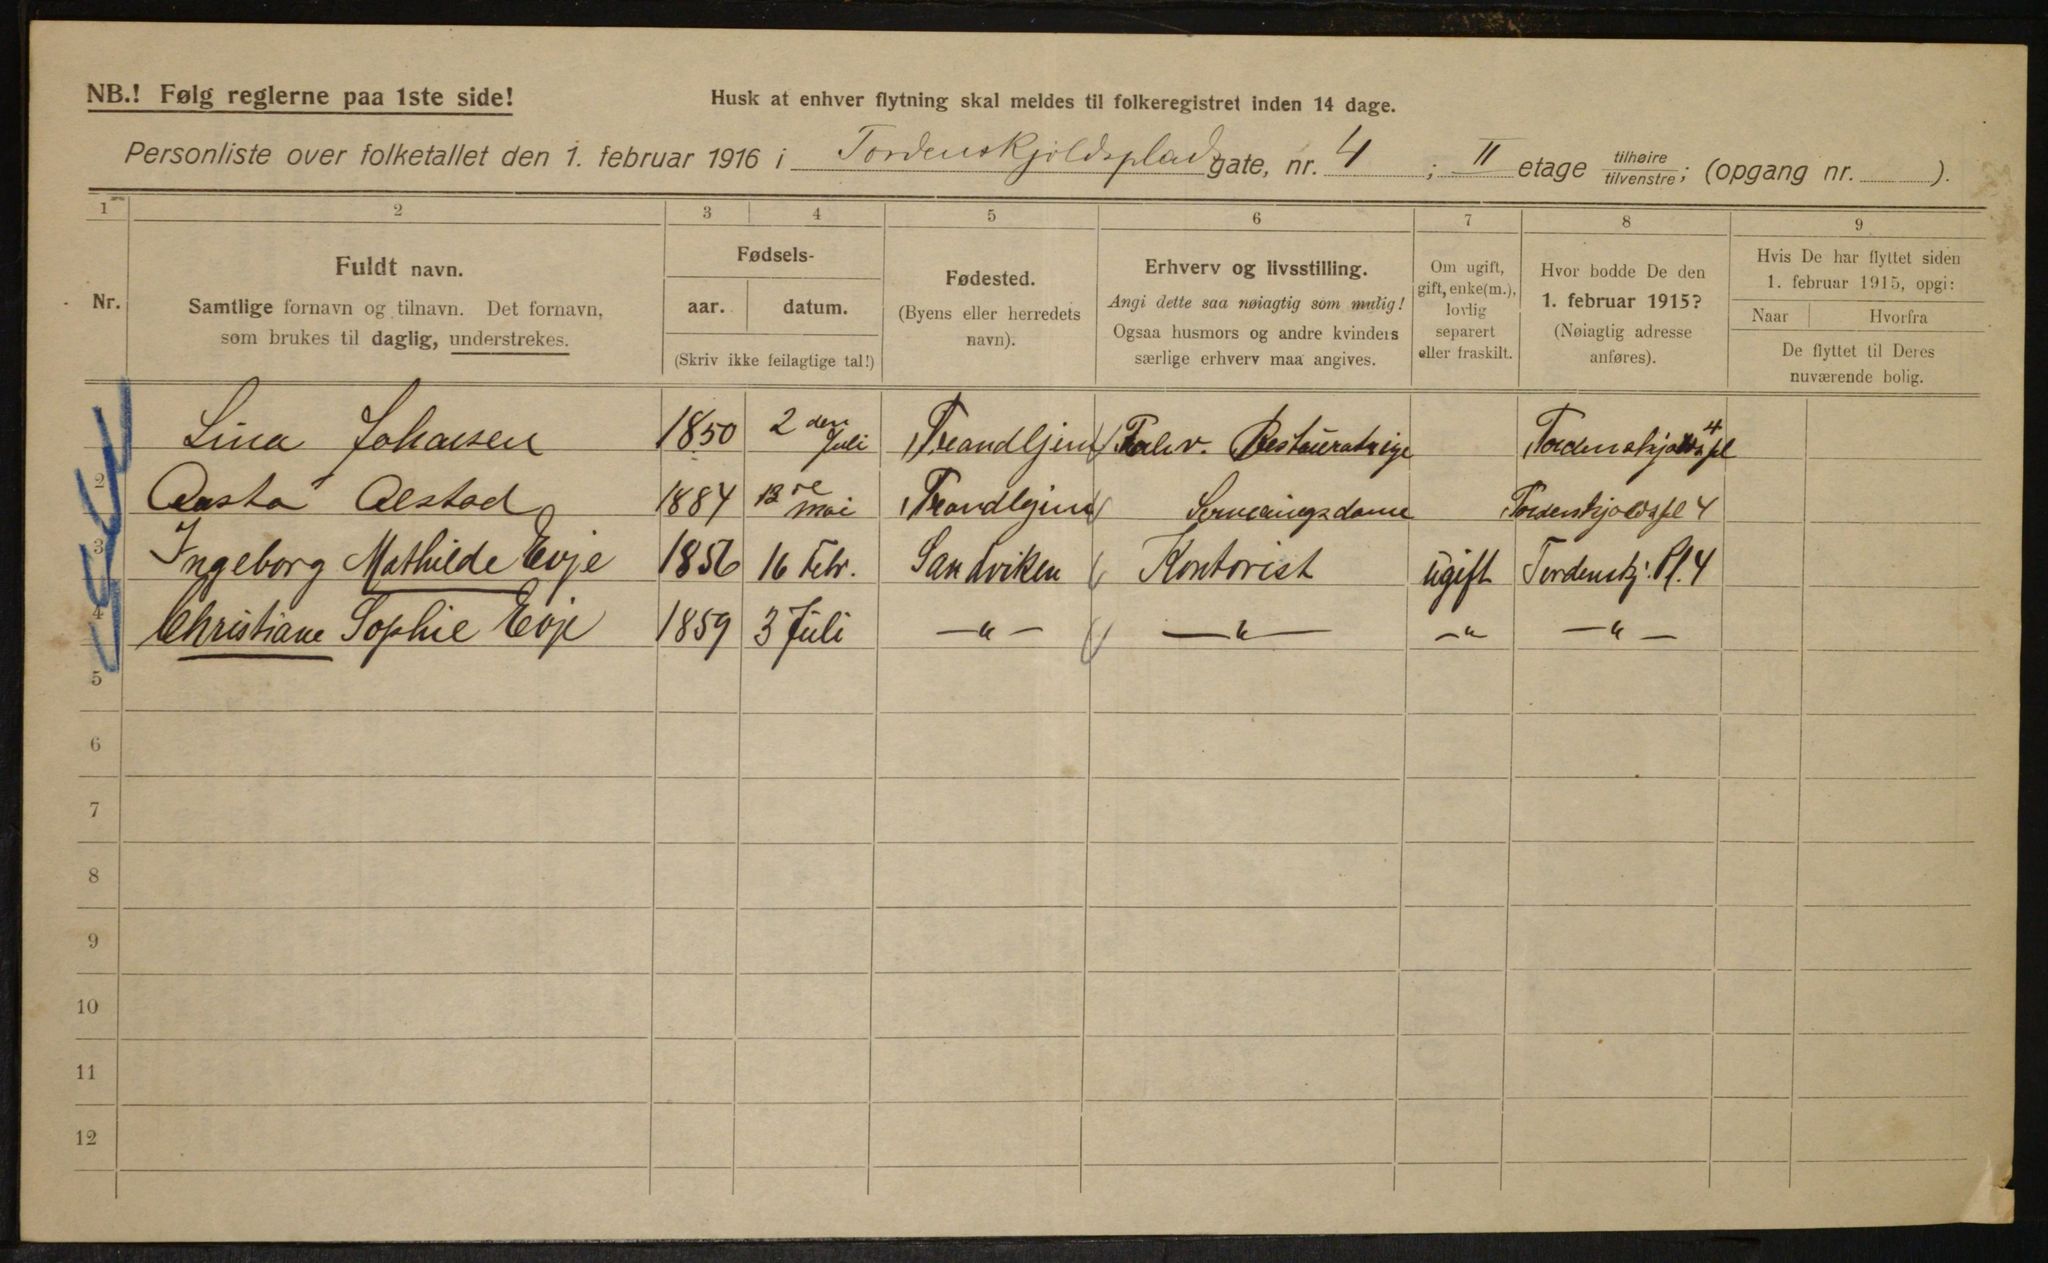 NB.! Følg reglerne paa 1ste side!
Husk at enhver flytning skal meldes til folkeregistret inden 14 dage.
Personliste over folketallet den 1. februar 1916 i Tordenskjoldsplads gate, nr. 4 ; II etage tilhøire tilvenstre; (opgang nr. ).
1 2 3 4 5 6 7 8 9
Nr.
Fuldt navn.
Samtlige fornavn og tilnavn. Det fornavn,
som brukes til daglig, understrekes.
Fødsels-
aar. datum.
(Skriv ikke feilagtige tal!)
Fødested.
(Byens eller herredets
navn).
Erhverv og livsstilling.
Angi dette saa nøiagtig som mulig!
Ogsaa husmors og andre kvinders
særlige erhverv maa angives.
Om ugift,
gift, enke(m.),
lovlig
separert
eller fraskilt.
Hvor bodde De den
1. februar 1915?
(Nøiagtig adresse
anføres).
Hvis De har flyttet siden
1. februar 1915, opgi:
Naar Hvorfra
De flyttet til Deres
nuværende bolig.
Lina Johansen 1850 2 den Juli Trondhjem Restauratrice Tordenskjolds pl 4
2 Aasta Alstad 1884 13 de Mai Trondhjem Serveringsdame Tordenskjoldspl 4
3 Ingeborg Mathilde Evje 1856 16 Febr. Sandviken Kontorist ugift Tordenskj. Pl. 4
4 Christiane Sophie Evje 1859 3 Juli —"— —"— —"— —"—
5
6
7
8
9
10
11
12